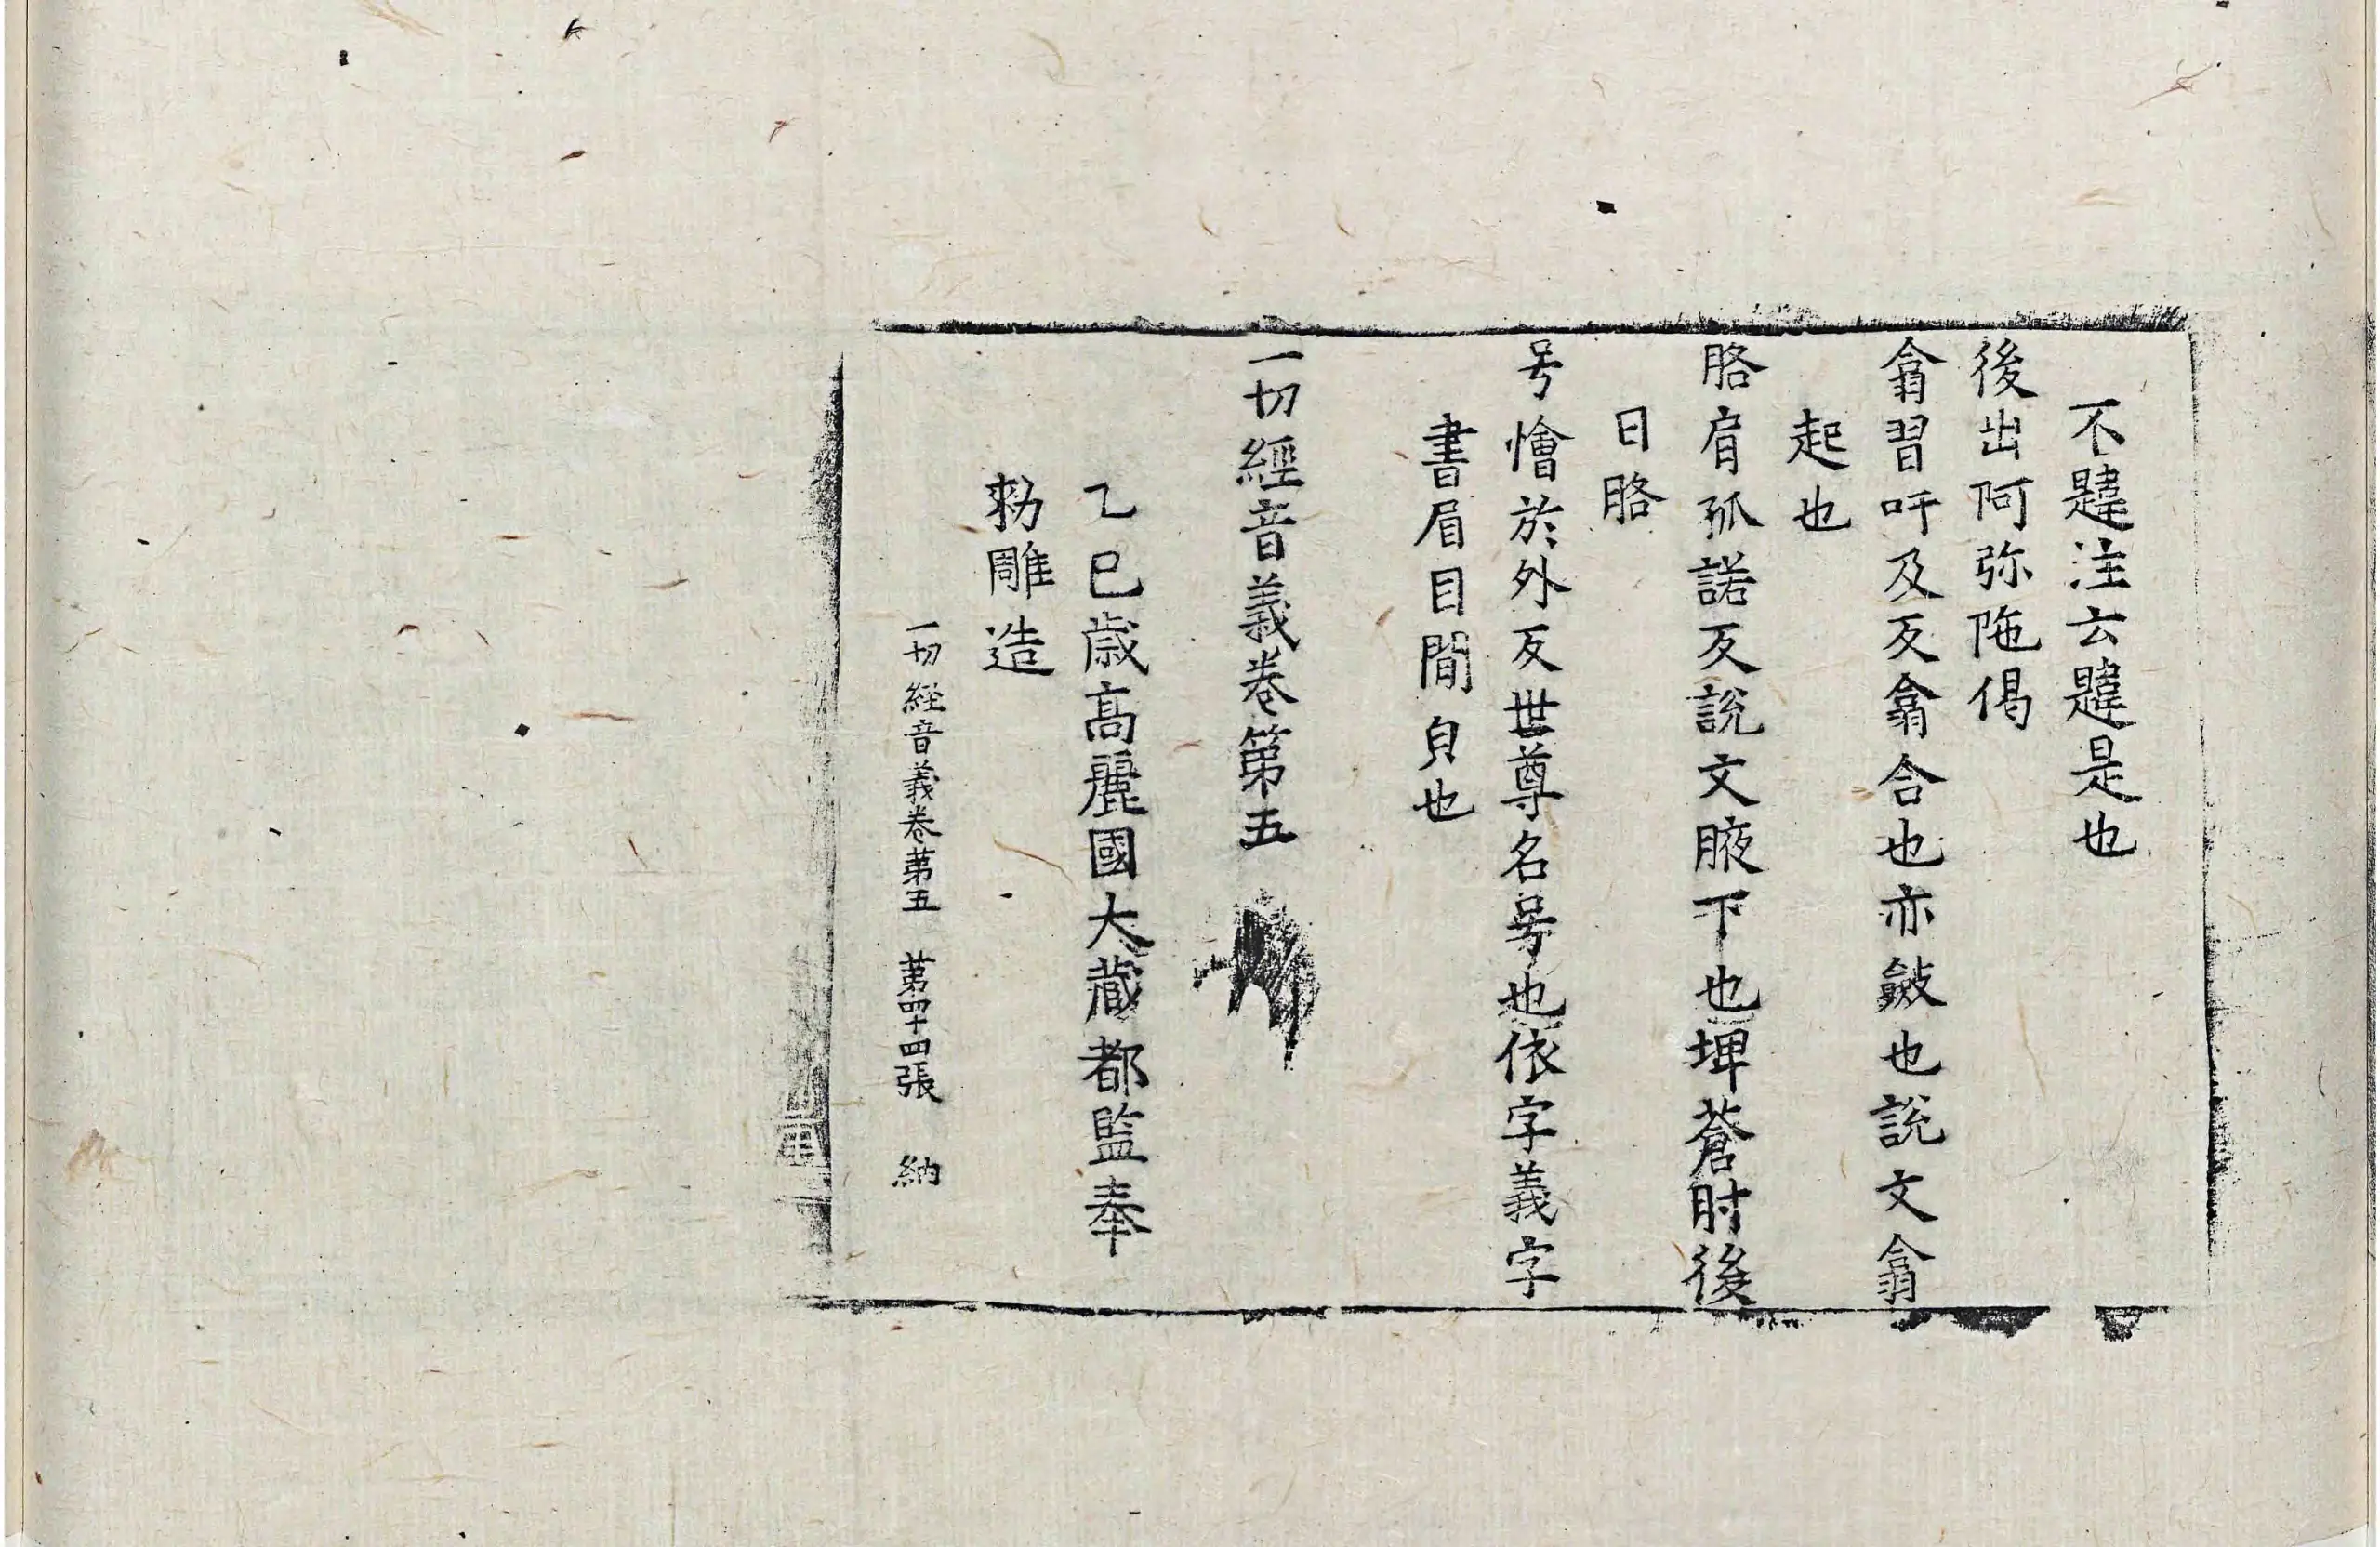 不韙注云韙是也
後出阿弥陁偈
翕習吁及反翕合也亦斂也說文翕
起也
胳肩孤諾反說文腋下也埤蒼肘後
曰胳
号懀於外反世尊名号也依字義字
書眉目間皃也
一切經音義卷第五
乙巳歳高麗國大藏都監奉
勑雕造
一切経音義卷苐五 苐四十四張 納